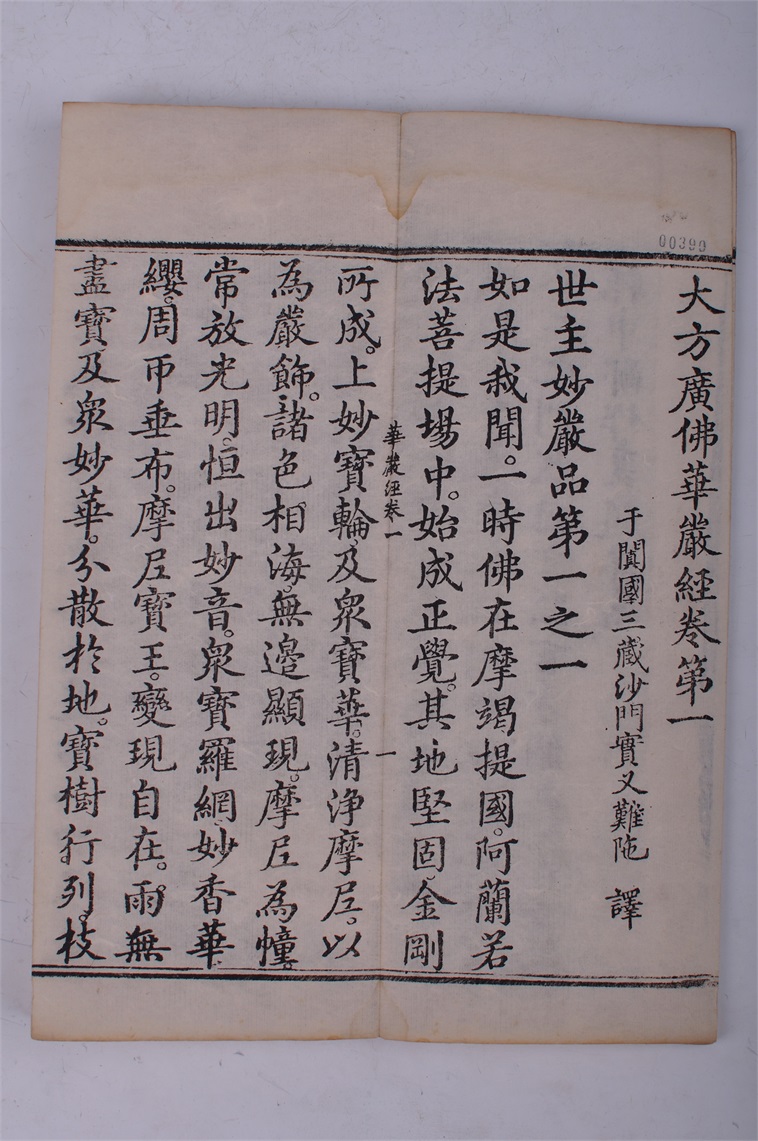 00390
大方廣佛華嚴經卷第一
于闐國三藏沙門實叉難陁 譯
世主妙嚴品第一之一
如是我聞。一時佛在摩竭提國。阿蘭若
法菩提場中。始成正覺。其地堅固。金剛
華嚴經卷一
一
所成。上妙寶輪。及眾寶華。清淨摩尼。以
為嚴飾。諸色相海。無邊顯現。摩尼為幢。
常放光明。恒出妙音。眾寶羅網。妙香華
纓。周帀垂布。摩尼寶王。變現自在。雨無
盡寶及眾妙華。分散於地。寶樹行列。枝